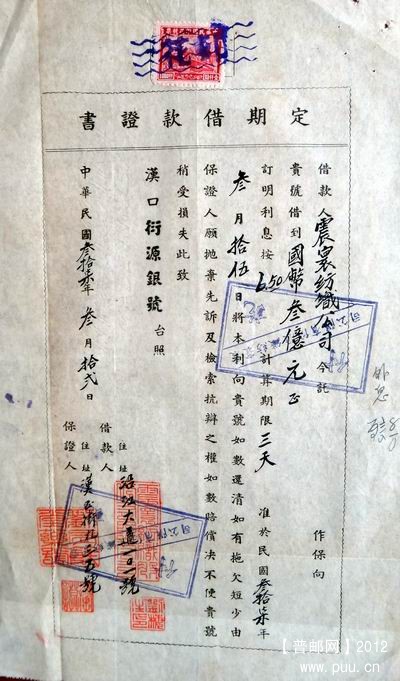 印花
定期借款證書
借款人震寰紡織公司今託 作保向
貴號借到國幣叁億元正
訂明利息按6.50計算期限三天 准於民國叁拾柒年
叁月拾伍日將本利向貴號如數還清如有拖欠短少由
保證人願抛棄先訴及檢索抗辯之權如數賠償决不使貴號
稍受損失此致
漢口衍源銀號 台照
借款人 住址 沿江大道一〇一號
保證人 住址
中華民國叁拾柒年叁月拾弍日
【普邮网】2012
www.puu.cn